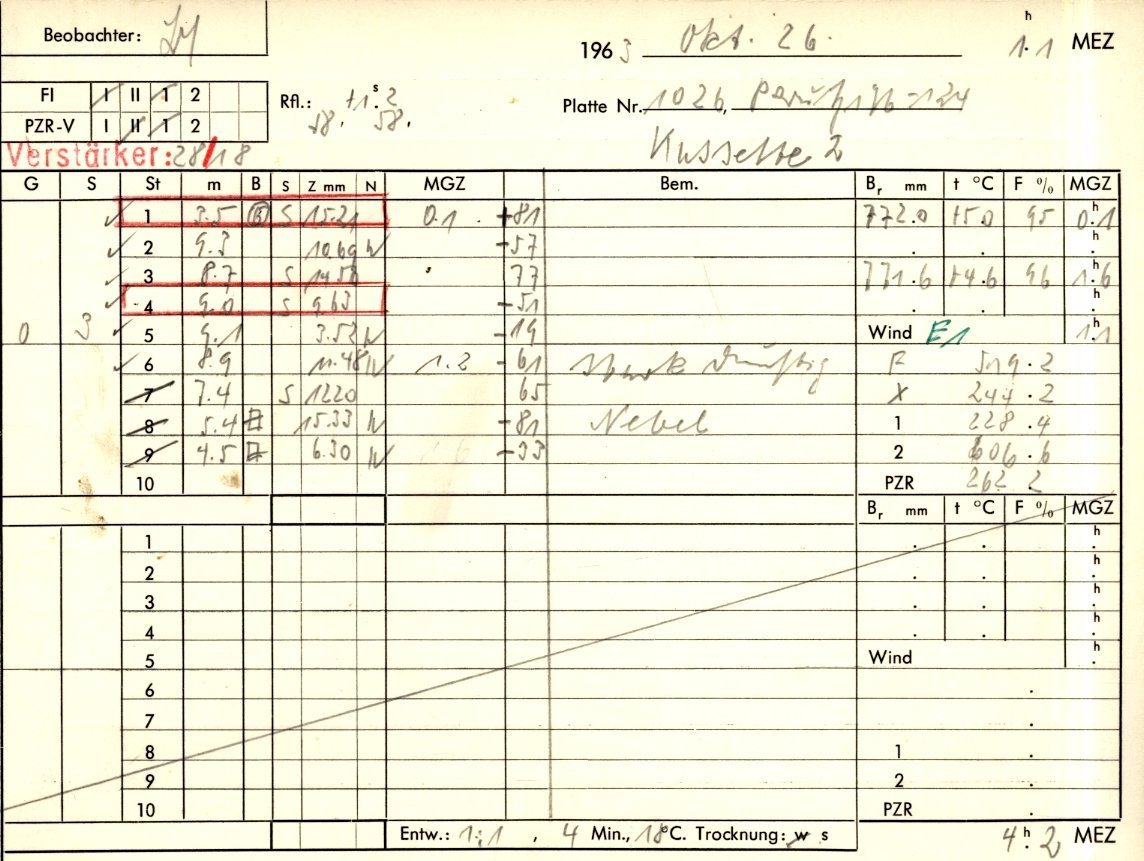 Beobachter:
1963 Okt. 26. 1.1 h MEZ
FI I II 1 2
PZR-V I II 1 2
Rfl.: +1.2 s
58. 58.
Platte Nr. 1026,
Kassette 2
Verstärker: 28/18
G S St m B S Z mm N MGZ Bem. Br mm t °C F % MGZ
1 3.5 B S 15.21 0.1 +81 772.0 +5.0 95 0.1 h
2 9.3 10.69 N -57 . . h
3 8.7 S 14.56 77 771.6 +4.6 96 1.6 h
4 9.0 S 9.63 -51 . . h
0 3 5 9.1 3.52 N -19 Wind E1 1.1 h
6 8.9 11.48 N 1.2 -61 stark dunstig F 519.2
7 7.4 S 12.20 65 X 244.2
8 5.4 B 15.33 N -81 Nebel 1 228.4
9 4.5 B 6.30 N -33 2 606.6
10 PZR 262.2
Br mm t °C F % MGZ
1 . . h
2 . . h
3 . . h
4 . . h
5 Wind h
6 .
7 .
8 1 .
9 2 .
10 PZR .
Entw.: 1:1, 4 Min., 18°C. Trocknung: w s 4 h 2 MEZ